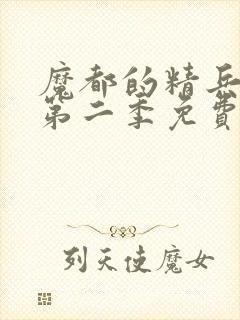 魔都的精兵
第二季免費
列天使魔女